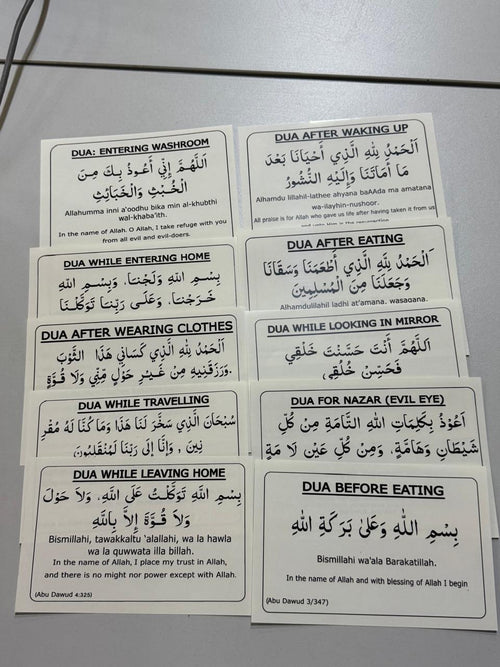 DUA: ENTERING WASHROOM
اَللّٰهُمَّ إِنِّي أَعُوذُ بِكَ مِنَ
الْخُبْثِ وَالْخَبَائِثِ
Allahumma inni a'oodhu bika min al-khubthi
wal-khaba'ith.
In the name of Allah. O Allah, I take refuge with you
from all evil and evil-doers.
DUA WHILE ENTERING HOME
بِسْمِ اللهِ وَلَجْنَا، وَبِسْمِ اللهِ
خَرَجْنَا، وَعَلَى رَبِّنَا تَوَكَّلْنَا
DUA AFTER WEARING CLOTHES
اَلْحَمْدُ لِلّٰهِ الَّذِي كَسَانِي هَذَا الثَّوْبَ
وَرَزَقَنِيهِ مِنْ غَيْرِ حَوْلٍ مِنِّي وَلَا قُوَّةٍ.
DUA WHILE TRAVELLING
سُبْحَانَ الَّذِي سَخَّرَ لَنَا هَذَا وَمَا كُنَّا لَهُ مُقْرِ
نِينَ , وَإِنَّا إِلَى رَبِّنَا لَمُنْقَلِبُونَ
DUA WHILE LEAVING HOME
بِسْمِ اللَّهِ تَوَكَّلْتُ عَلَى اللهِ، وَلاَ حَوْلَ
وَلاَ قُوَّةَ إِلاَّ بِاللَّهِ
Bismillahi, tawakkaltu 'alallahi, wa la hawla
wa la quwwata illa billah.
In the name of Allah, I place my trust in Allah,
and there is no might nor power except with Allah.
(Abu Dawud 4:325)
DUA AFTER WAKING UP
اَلْحَمْدُ لِلّٰهِ الَّذِي أَحْيَانَا بَعْدَ
مَا أَمَاتَنَا وَإِلَيْهِ النُّشُورُ
Alhamdu lillahil-lathee ahyana baAAda ma amatana
wa-ilayhin-nushoor.
All praise is for Allah who gave us life after having taken it from us
and unto Him is the resurrection
DUA AFTER EATING
اَلْحَمْدُ لِلَّهِ الَّذِي أَطْعَمَنَا وَسَقَانَا
وَجَعَلَنَا مِنَ الْمُسْلِمِينَ
Alhamdulillahil ladhi at'amana, wasaqana,
DUA WHILE LOOKING IN MIRROR
اَللَّهُمَّ أَنْتَ حَسَّنْتَ خَلْقِي
فَحَسِّنْ خُلُقِي
DUA FOR NAZAR (EVIL EYE)
اَعُوْذُ بِكَلِمَاتِ اللهِ التَّامَّةِ مِنْ كُلِّ
شَيْطَانٍ وَهَامَّةٍ، وَمِنْ كُلِّ عَيْنٍ لَا مَةٍ
DUA BEFORE EATING
بِسْمِ اللّٰهِ وَعَلىٰ بَرَكَةِ اللهِ
Bismillahi wa'ala Barakatillah.
In the name of Allah and with blessing of Allah I begin
(Abu Dawud 3/347)